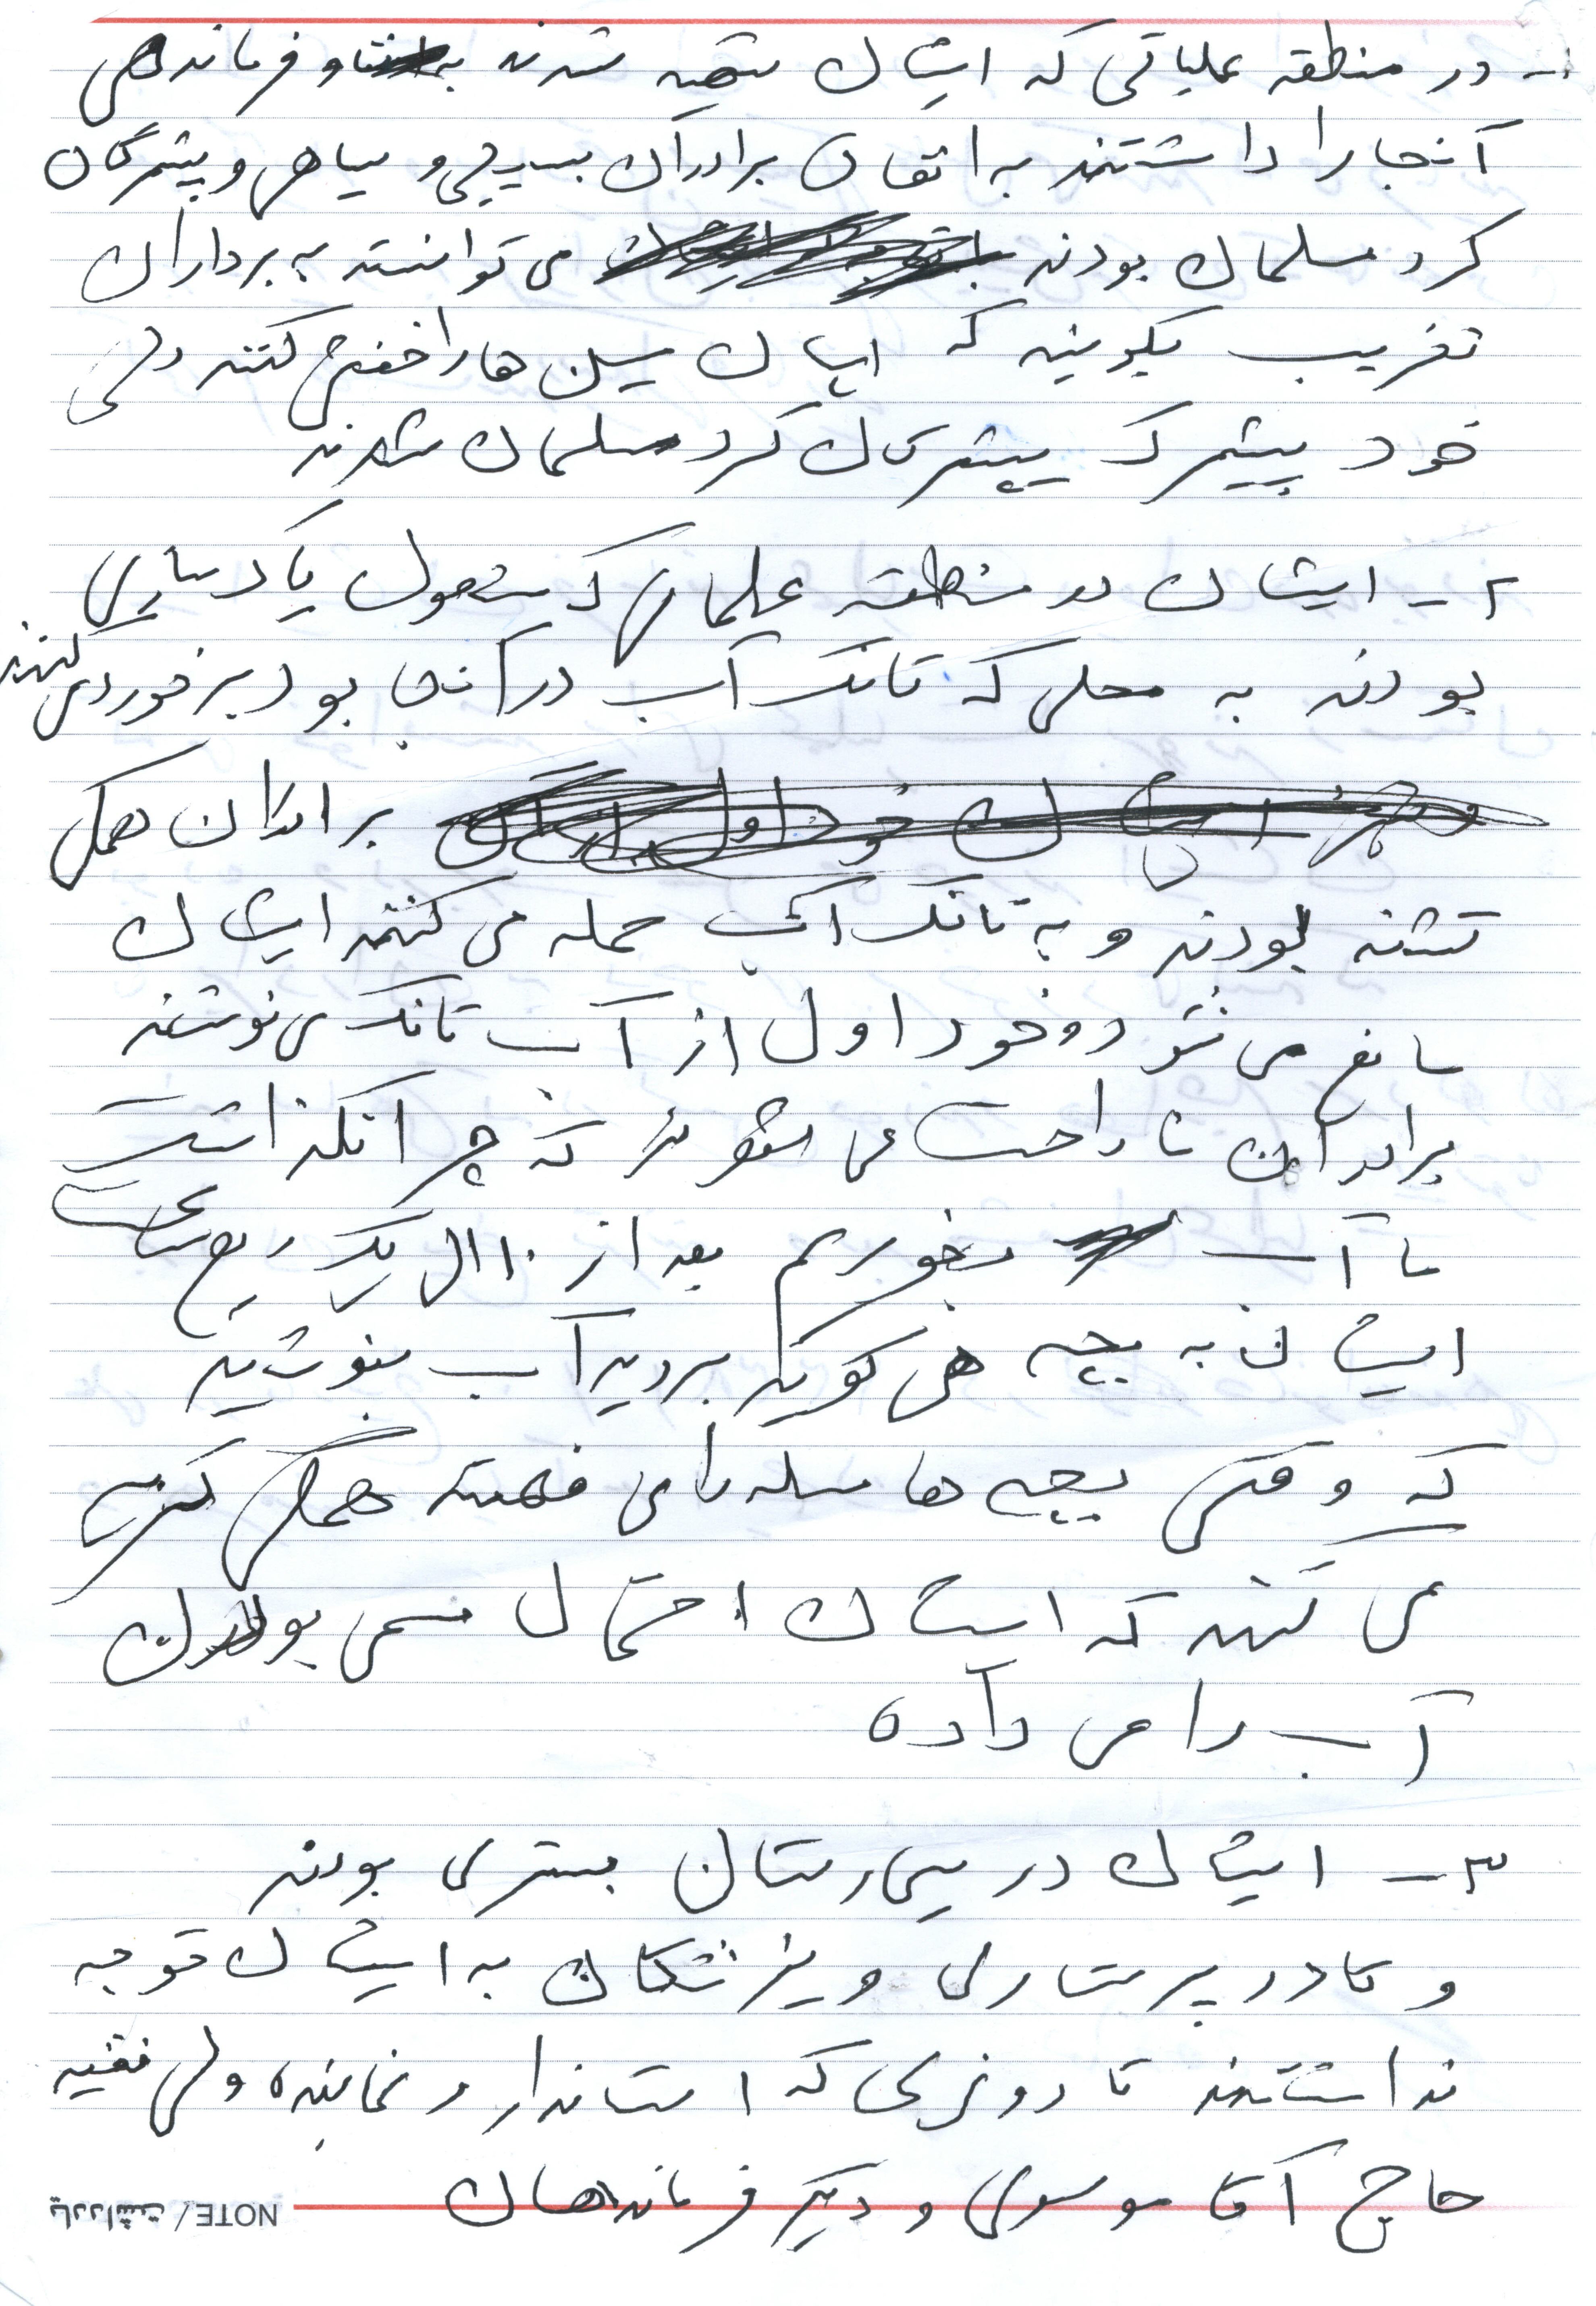 ۱- در منطقه عملیاتی که ایشان شهید شدند و فرماندهی
آنجا را داشتند به اتفاق برادران بسیجی و سپاهی و پیشمرگان
کرد مسلمان بودند می توانسته به برداران
تخریب بگویند که ایشان مین ها را خنثی کنند ولی
خود پیشمرگ پیشمرگان کرد مسلمان شدند
۲- ایشان در منطقه عملیاتی که مشغول پاکسازی
بودند به محلی که تانک آب در آنجا بود برخوردی کنند
برادران همگی
تشنه بودند و به تانک آب حمله می کنند ایشان
مانع می شود و خود اول از آب تانک می نوشند
برادران ناراحت می شوند که چرا نگذاشت
ما آب بخوریم بعد از ۱۰ الی یک ربع ساعت
ایشان به بچه هی گوید بروید آب بنوشید
که وقتی بچه ها مسله را می فهمند همگی گریه
می کنند که ایشان احتمال سمی بودن
آب را می داده
۳- ایشان در بیمارستان بستری بودند
و کادر پرستاری و پزشکان به ایشان توجه
نداشتند تا روزی که استاندار و نماینده ولی فقیه
حاج آقا موسوی و دیگر فرماندهان
یادداشت / NOTE